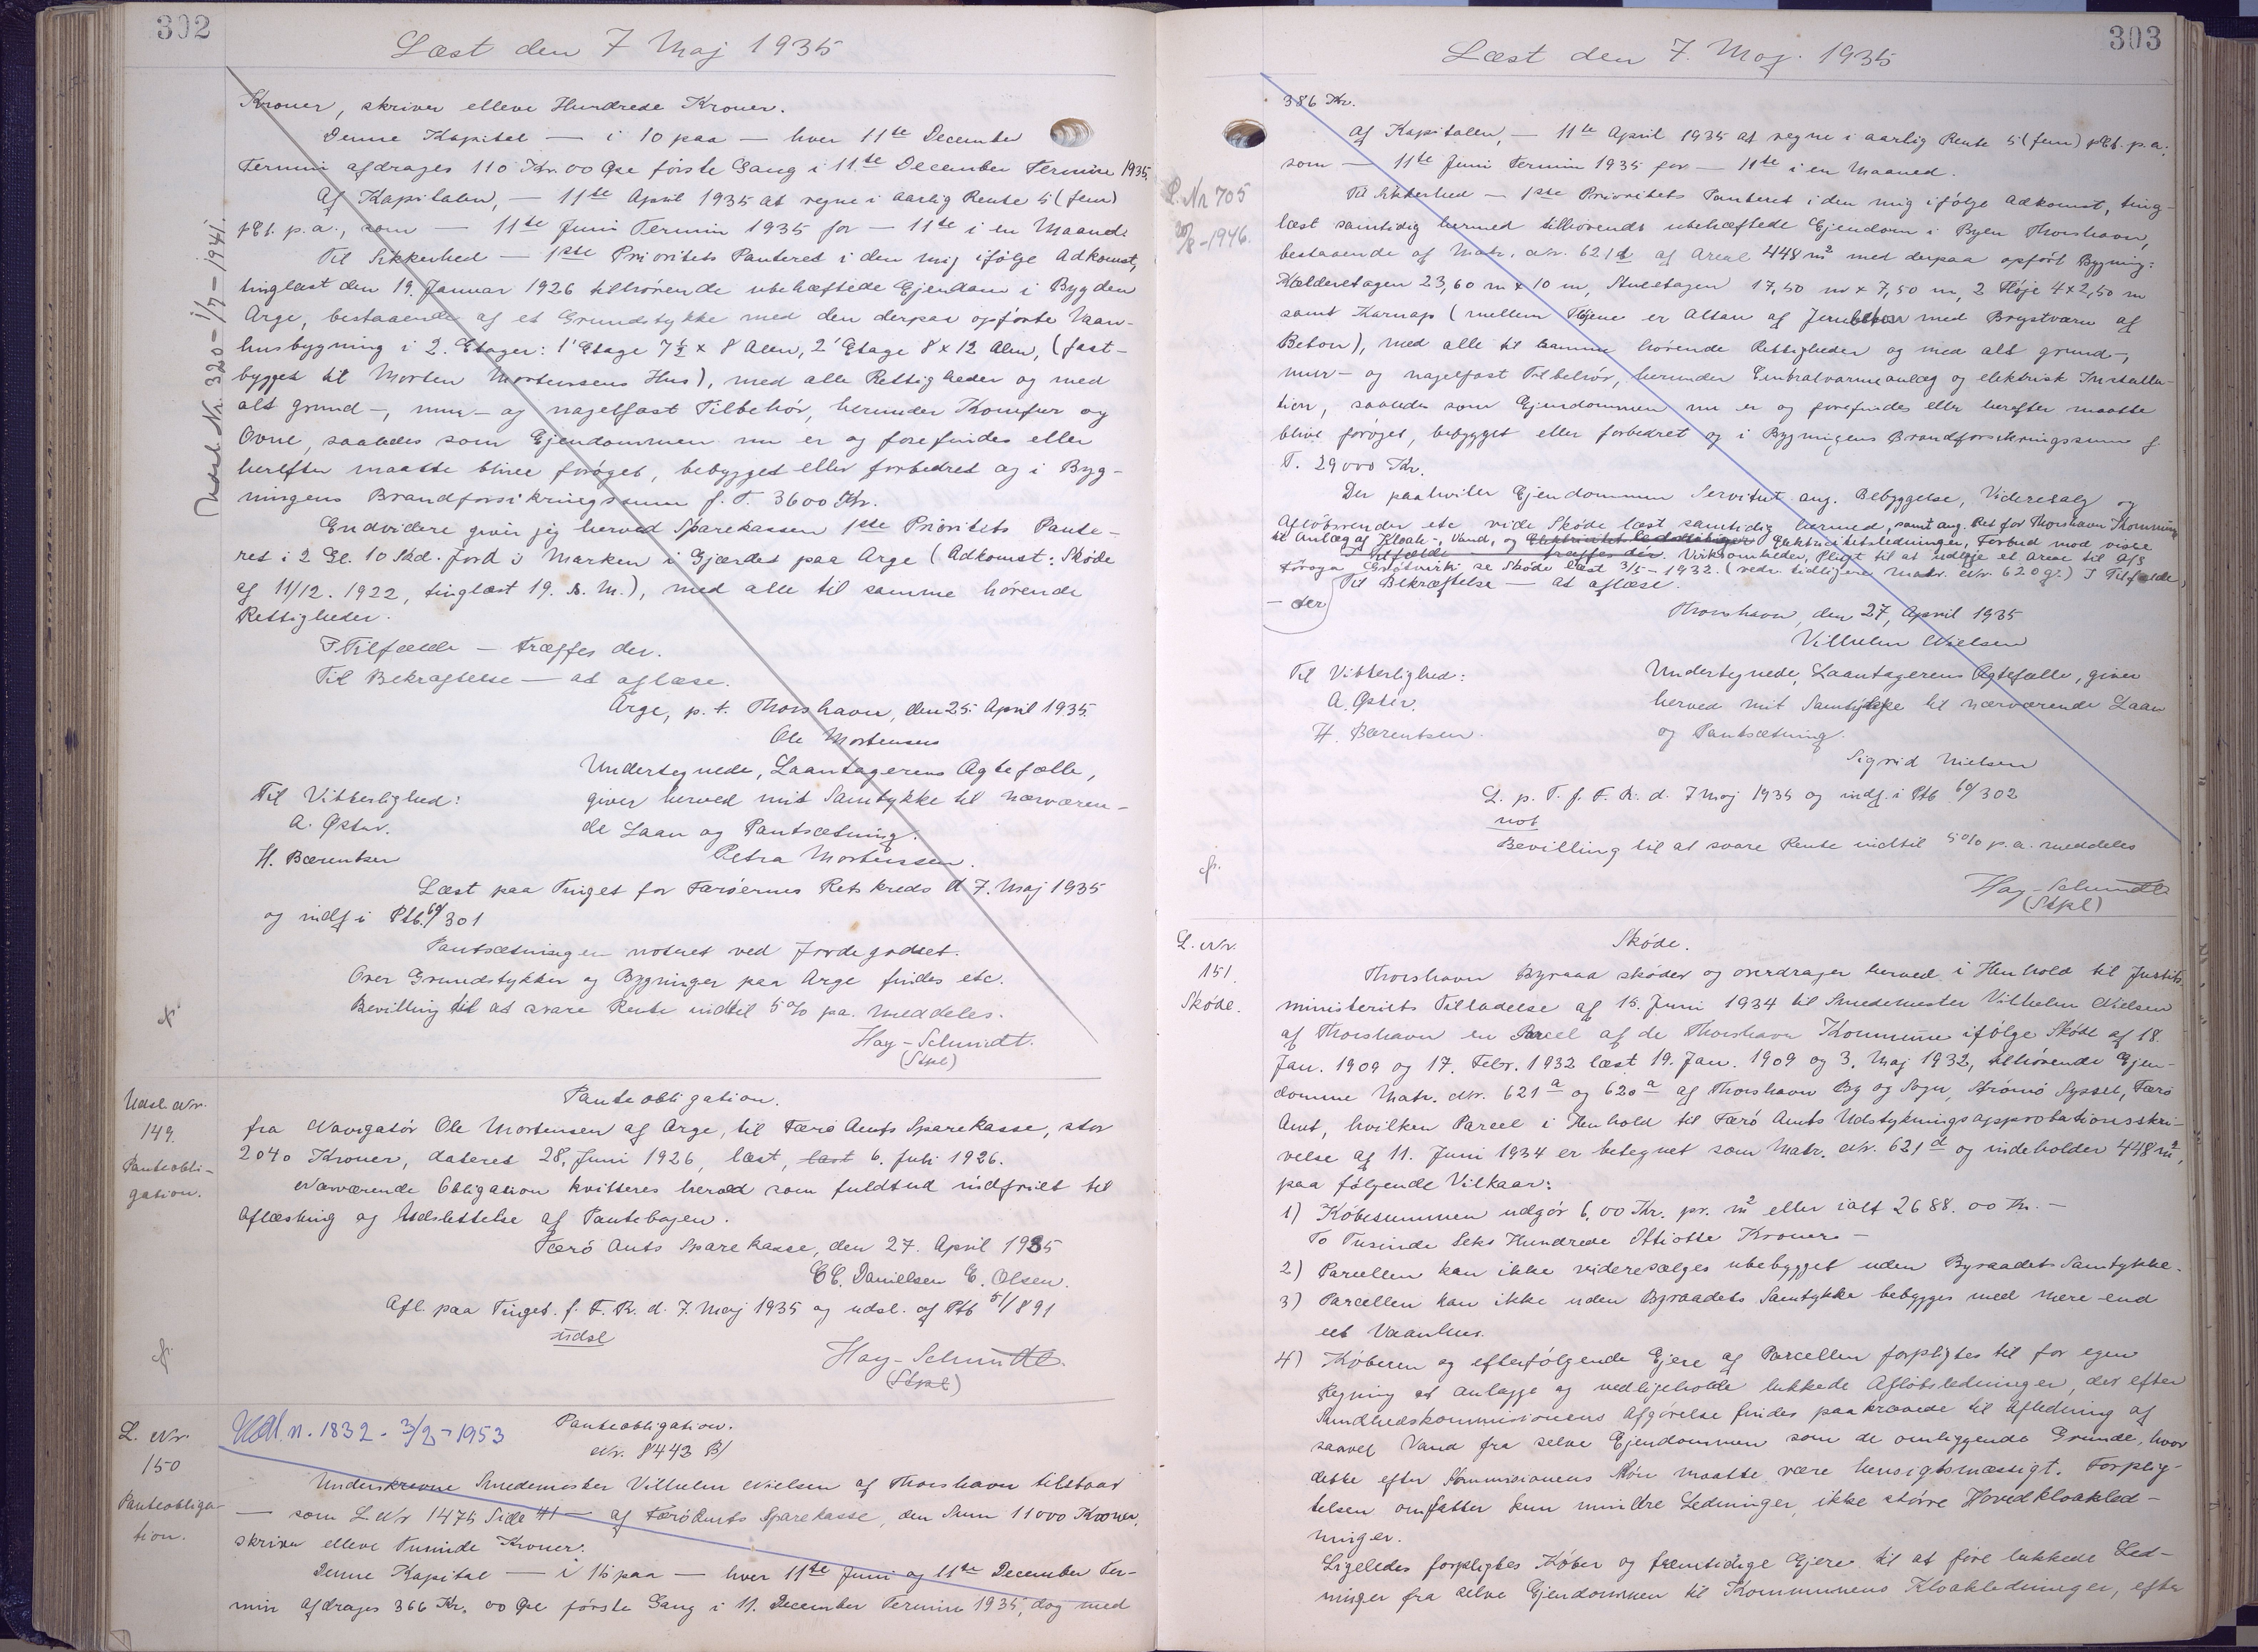 302
Læst den 7 Maj 1935
Kroner, skriver elleve Hundrede Kroner.
Denne Kapital — i 10 paa — hver 11te December
Termin afdrages 110 Kr. 00 Øre første Gang i 11te December Termin 1935.
Af Kapitalen, — 11te April 1935 at regne i aarlig Rente 5 (fem)
pCt. p.a., som — 11te Juni Termin 1935 for — 11te i en Maaned.
Til Sikkerhed — 1ste Prioritets Panteret i den mig ifølge Adkomst,
tinglæst den 19. Januar 1926 tilhørende ubehæftede Ejendom i Bygden
Arge, bestaaende af et Grundstykke med den derpaa opførte Vaan-
husbygning i 2. Etager: 1' Etage 7½ x 8 Alen, 2' Etage 8 x 12 Alen, (fast-
bygget til Morten Mortensens Hus), med alle Rettigheder og med
alt grund-, mur- og nagelfast Tilbehør, herunder Komfur og
Ovne, saaledes som Ejendommen nu er og forefindes eller
herefter maatte blive forøget, bebygget eller forbedret og i Byg-
ningens Brandforsikringssum f. T. 3600 Kr.
Endvidere giver jeg herved Sparekassen 1ste Prioritets Pante-
ret i 2 Gl. 10 Skd. Jord i Marken i Gjærdet paa Arge (Adkomst: Skøde
af 11/12. 1922, tinglæst 19. s. M.), med alle til samme hørende
Rettigheder.
I Tilfælde — træffes der.
Til Bekræftelse — at aflæse.
Arge, p. t. Thorshavn, den 25. April 1935.
Ole Mortensen
Undertegnede, Laantagerens Ægtefælle,
Til Vitterlighed: giver herved mit Samtykke til nærværen-
A. Øster. de Laan og Pantsætning.
H. Bærentsen Petra Mortensen.
Læst paa Tinget for Færøernes Retskreds d 7. Maj 1935
og indf i Ptb. 60/301
Pantsætningen noteret ved Jordegodset.
Over Grundstykker og Bygninger paa Arge findes etc.
Bevilling til at svare Rente indtil 5% pa. meddeles.
Hay-Schmidt.
(Stpl)
Udsl. Nr. 320 - 1/7 - 1941.
Udsl. Nr.
149.
Panteobli-
gation.
Panteobligation.
fra Navigatør Ole Mortensen af Arge, til Færø Amts Sparekasse, stor
2040 Kroner, dateret 28. Juni 1926, læst, læst 6. Juli 1926.
Nærværende Obligation kvitteres herved som fuldtud indfriet til
Aflæsning og Udslettelse af Pantebogen.
Færø Amts Sparekasse, den 27. April 1935
C.C. Danielsen E. Olsen.
Afl. paa Tinget. f. F. R. d. 7 Maj 1935 og udsl. af Ptb 51/891
udsl
Hay-Schmidt.
(Stpl)
L. Nr.
150
Panteobliga-
tion.
Udl. n. 1832 - 3/2 - 1953
Panteobligation.
Nr. 8443 B/
Underskrevne Smedemester Vilhelm Nielsen af Thorshavn tilstaar
— som L Nr 1475 Side 41 — af Færø Amts Sparekasse, den Sum 11000 Kroner,
skriver elleve Tusinde Kroner.
Denne Kapital — i 15 paa — hver 11te Juni og 11te December Ter-
min afdrages 366 Kr. 00 Øre første Gang i 11. December Termin 1935, dog med
303
Læst den 7. Maj. 1935
386 Kr.
Af Kapitalen, — 11te April 1935 at regne i aarlig Rente 5 (fem) pCt. p.a.,
som — 11te Juni Termin 1935 for — 11te i en Maaned.
Til Sikkerhed — 1ste Prioritets Panteret i den mig ifølge Adkomst, ting-
læst samtidig hermed tilhørende ubehæftede Ejendom i Byen Thorshavn,
bestaaende af Matr. Nr. 621d af Areal 448 m² med derpaa opført Bygning:
Kælderetagen 23,60 m x 10 m, Stueetagen 17,50 m x 7,50 m, 2 Fløje 4 x 2,50 m
samt Karnap (mellem Fløjene er Altan af Jernbeton med Brystværn af
Beton), med alle til samme hørende Rettigheder og med alt grund-,
mur- og nagelfast Tilbehør, herunder Centralvarmeanlæg og elektrisk Installa-
tion, saaledes som Ejendommen nu er og forefindes eller herefter maatte
blive forøget, bebygget eller forbedret og i Bygningens Brandforsikringssum f.
T. 29000 Kr.
Der paahviler Ejendommen Servitut ang. Bebyggelse, Videresalg og
Afløbsrender etc. vide Skøde læst samtidig hermed, samt ang. Ret for Thorshavn Kommune
til Anlæg af Kloak-, Vand, og Elektricitetsledninger, Forbud mod visse
Virksomheder, Pligt til at udlægge et Areal til A/S
Føroya se Skøde læst 3/5 - 1932. (vedr. tidligere Matr. Nr. 620g.) I Tilfælde
— der
Til Bekræftelse — at aflæse.
Thorshavn, den 27, April 1935
Vilhelm Nielsen
Til Vitterlighed: Undertegnede, Laantagerens Ægtefælle, giver
A. Øster. herved mit Samtykke til nærværende Laan
H. Bærentsen. og Pantsætning.
Sigrid Nielsen
L. p. T. f. F. R. d. 7 Maj 1935 og indf. i Ptb 60/302
not
Bevilling til at svare Rente indtil 5% p.a. meddeles
Hay-Schmidt
(Stpl)
L. Nr 705
20/8 - 1946.
L. Nr.
151.
Skøde.
Skøde.
Thorshavn Byraad skøder og overdrager herved i Henhold til Justits-
ministeriets Tilladelse af 15. Juni 1934 til Smedemester Vilhelm Nielsen
af Thorshavn en Parcel af de Thorshavn Kommune ifølge Skøde af 18.
Jan. 1909 og 17. Febr. 1932 læst 19. Jan. 1909 og 3. Maj 1932, tilhørende Ejen-
domme Matr. Nr. 621a og 620a af Thorshavn By og Sogn, Strømø Syssel, Færø
Amt, hvilken Parcel i Henhold til Færø Amts Udstykningsapprobationsskri-
velse af 11. Juni 1934 er betegnet som Matr. Nr. 621d og indeholder 448 m²,
paa følgende Vilkaar:
1) Købesummen udgør 6,00 Kr. pr. m² eller ialt 2688.00 Kr. —
To Tusinde Seks Hundrede Ottiotte Kroner —
2) Parcellen kan ikke videresælges ubebygget uden Byraadets Samtykke.
3) Parcellen kan ikke uden Byraadets Samtykke bebygges med mere end
eet Vaanhus.
4) Køberen og efterfølgende Ejere af Parcellen forpligtes til for egen
Regning at anlægge og vedligeholde lukkede Afløbsledninger, der efter
Sundhedskommisionens Afgørelse findes paakrævede til Afledning af
saavel Vand fra selve Ejendommen som de omliggende Grunde, hvor
dette efter Kommisionens Skøn maatte være hensigtsmæssigt. Forplig-
telsen omfatter kun mindre Ledninger, ikke større Hovedkloakled-
ninger.
Ligeledes forpligtes Køber og fremtidige Ejere til at føre lukkede Led-
ninger fra selve Ejendommen til Kommunens Kloakledninger, efter